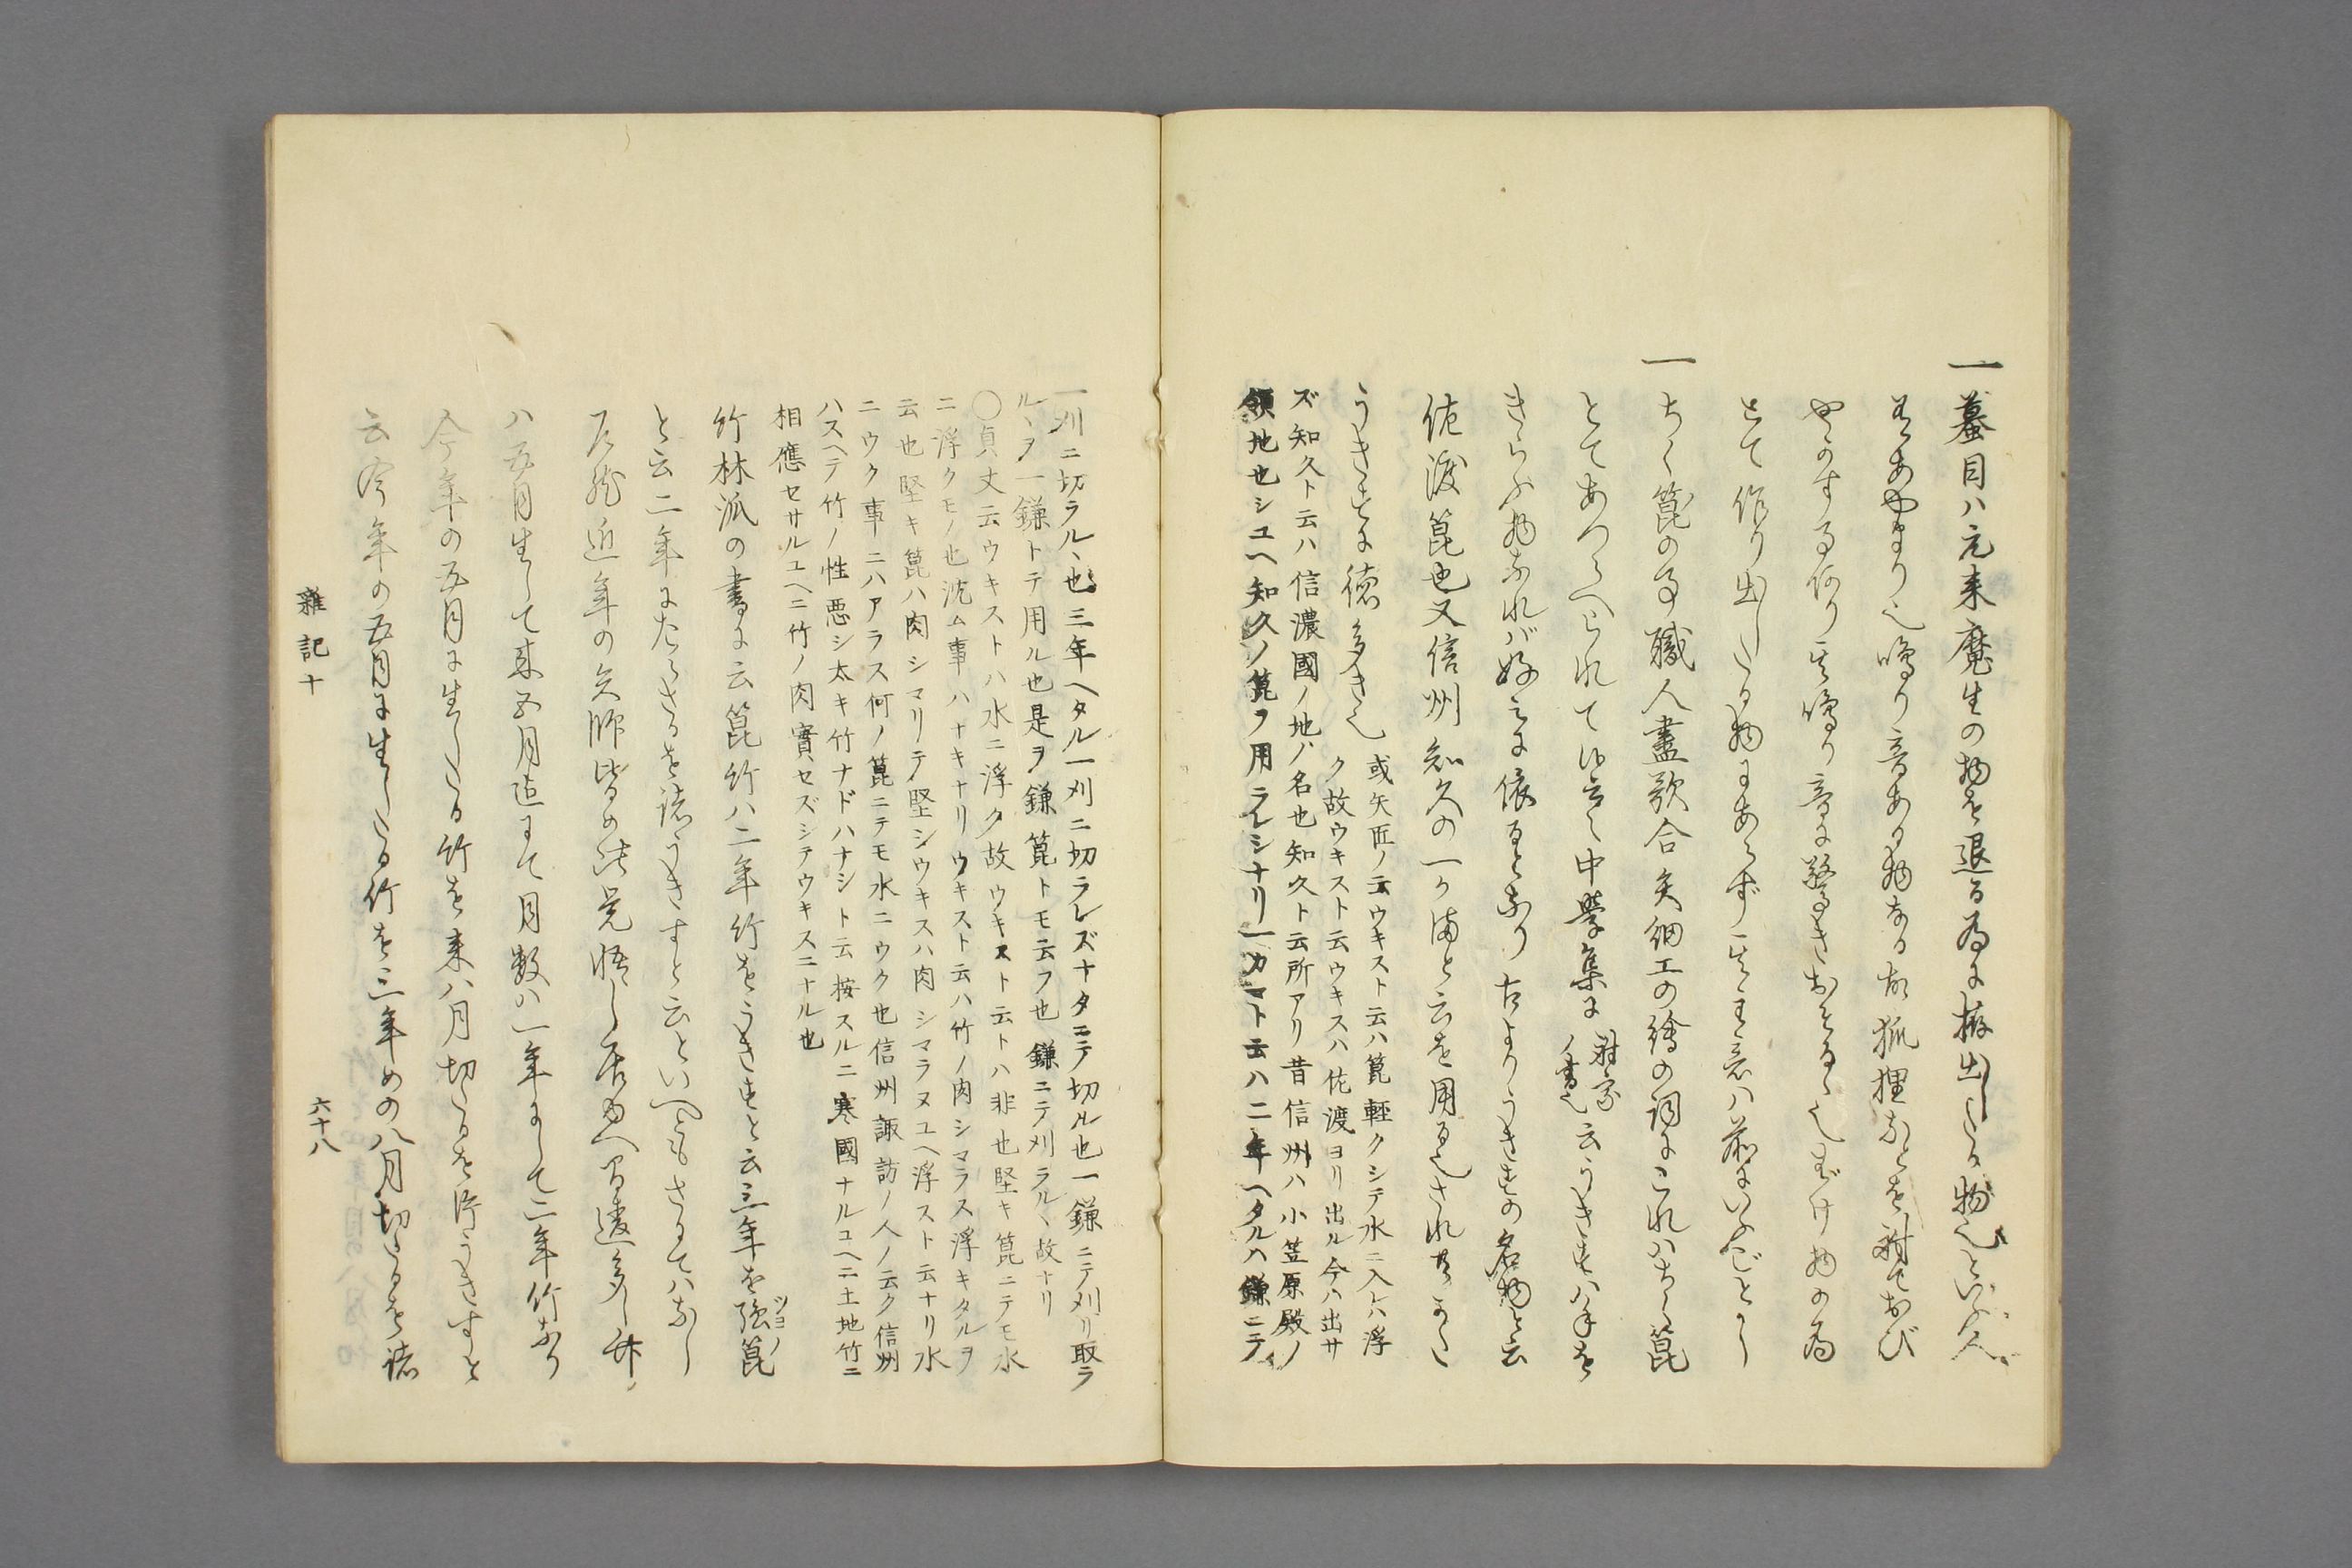 一蟇目ハ元来魔生の物を退る為に拵出したる物也といふ人
はあやまり也鳴り音ある物なる故狐狸などを射ておび
やかする何り其鳴り音に驚きおそるゝ也ばけ物の為
とて作り出したる物にあらず其主意ハ前にいふごとし
一ちく箆の事職人盡歌合矢細工の繪の詞にこれハちく箆
とてあつらへられて候云々中學集に射家ノ書也云うきすハ手を
きらふ物なれバ好に依ると有り古よりうきすの名物と云
佐渡箆也又信州知久の一かまと云を用る也されども
うきすに徳多き也
或矢匠ノ云ウキスト云ハ箆軽クシテ水ニ入レハ浮
ク故ウキスト云ウキスハ佐渡ヨリ出ル今ハ出サ
ズ知久ト云ハ信濃國ノ地ノ名也知久ト云所アリ昔信州ハ小笠原殿ノ
領地也シユヘ知久ノ箆ヲ用ラレシナリ一カマト云ハ二年ヘタルハ鎌ニテ
一刈ニ切ラルヽ也三年ヘタル一刈ニ切ラレズナタニテ切ル也一鎌ニテ刈リ取ラ
ルヽヲ一鎌トテ用ル也是ヲ鎌箆トモ云フ也鎌ニテ刈ラルヽ故ナリ
〇貞丈云ウキストハ水ニ浮ク故ウキスト云トハ非也堅キ箆ニテモ水
ニ浮クモノ也沈ム事ハナキナリウキスト云ハ竹ノ肉シマラス浮キタルヲ
云也堅キ箆ハ肉シマリテ堅シウキスハ肉シマラヌユヘ浮スト云ナリ水
ニウク事ニハアラス何ノ箆ニテモ水ニウク也信州諏訪ノ人ノ云ク信州
ハスヘテ竹ノ性悪シ太キ竹ナドハナシト云按スルニ寒國ナルユヘニ土地竹ニ
相應セサルユヘニ竹ノ肉實セズシテウキスニナル也
竹林派の書に云箆竹ハ二年竹をうきすと云三年を強箆ツヨノ
と云二年にたらざるを諸うきすと云といへどもさにてハなし
近年の矢師皆の覚悟し居間違多し
ハ五月生して来五月迄にて月数ハ一年にして二年竹なり
今年の五月に生したる竹を来八月切たるを諸うきすと
云今年の五月に生したる竹を三年めの八月切たるを諸
雜記十
六十八